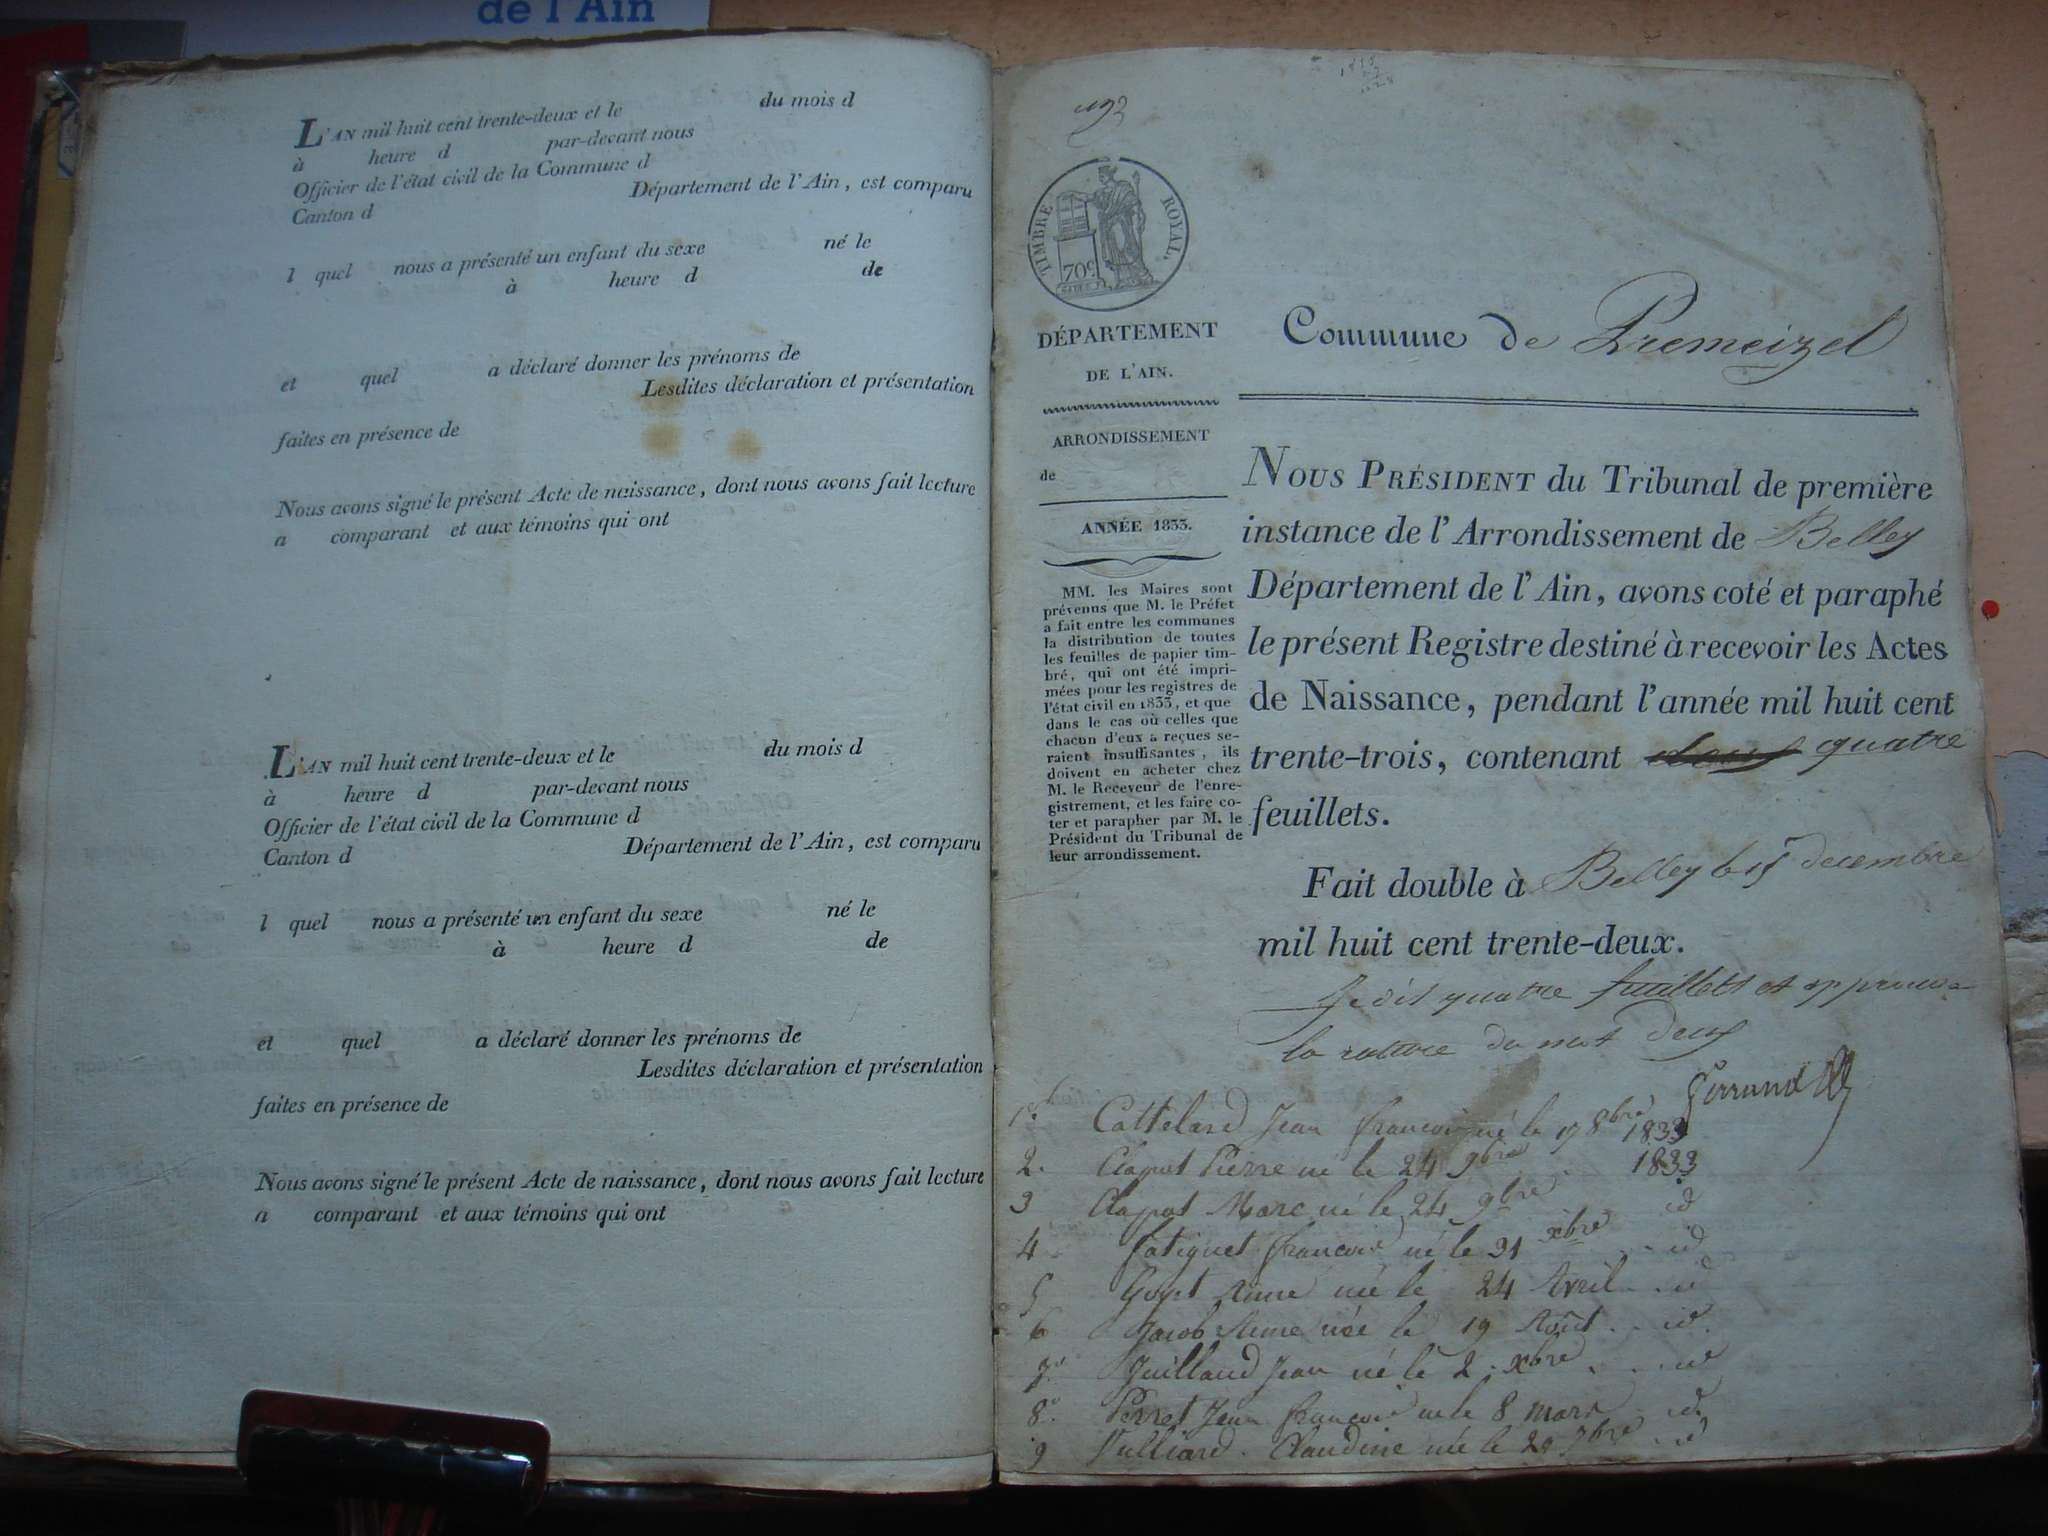 de l'Ain
L'AN mil huit cent trente-deux et le du mois d
à heure d par-devant nous
Officier de l'état civil de la Commune d
Canton d Département de l'Ain, est comparu
l quel nous a présenté un enfant du sexe né le
à heure d de
et quel a déclaré donner les prénoms de
Lesdites déclaration et présentation
faites en présence de
Nous avons signé le présent Acte de naissance, dont nous avons fait lecture
a comparant et aux témoins qui ont
L'AN mil huit cent trente-deux et le du mois d
à heure d par-devant nous
Officier de l'état civil de la Commune d
Canton d Département de l'Ain, est comparu
l quel nous a présenté un enfant du sexe né le
à heure d de
et quel a déclaré donner les prénoms de
Lesdites déclaration et présentation
faites en présence de
Nous avons signé le présent Acte de naissance, dont nous avons fait lecture
a comparant et aux témoins qui ont
TIMBRE ROYAL.
70c
DÉPARTEMENT
DE L'AIN.
ARRONDISSEMENT
de
ANNÉE 1833.
MM. les Maires sont
prévenus que M. le Préfet
a fait entre les communes
la distribution de toutes
les feuilles de papier tim-
bré, qui ont été impri-
mées pour les registres de
l'état civil en 1833, et que
dans le cas où celles que
chacun d'eux a reçues se-
raient insuffisantes, ils
doivent en acheter chez
M. le Receveur de l'enre-
gistrement, et les faire co-
ter et parapher par M. le
Président du Tribunal de
leur arrondissement.
Commune de Premeizel
NOUS PRÉSIDENT du Tribunal de première
instance de l'Arrondissement de Belley
Département de l'Ain, avons coté et paraphé
le présent Registre destiné à recevoir les Actes
de Naissance, pendant l'année mil huit cent
trente-trois, contenant deux quatre
feuillets.
Fait double à Belley le 15 decembre
mil huit cent trente-deux.
Je dis quatre feuillets et approuve
la rature du mot deux
1º Cattelard Jean francois né le 17 8bre 1833
2. Clapot Pierre né le 24 9bre 1833
3 Clapot Marc né le 24 9bre id
4 fatiguet francois né le 31 xbre id
5 née le 24 Avril id
6 Jacob née le 19 Août id
7º Juilland Jean né le 2 xbre id
8º Perret Jean francois né le 8 mars id
9 Vulliard Claudine née le 20 7bre id